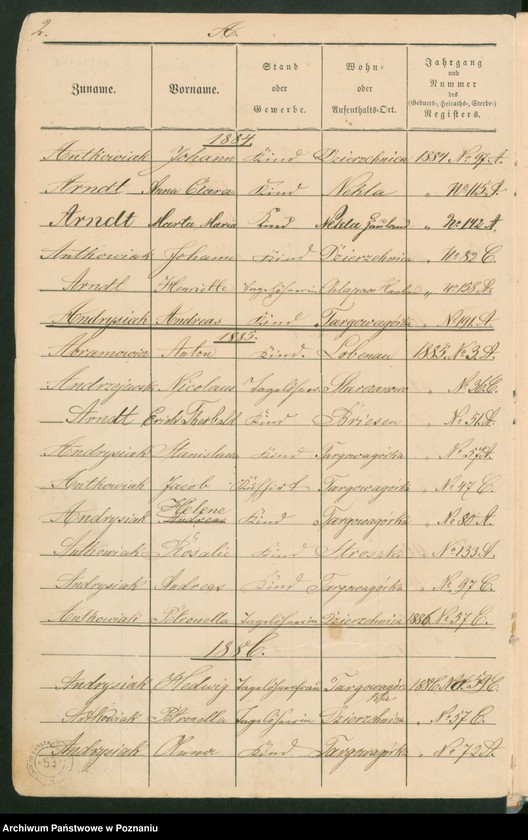 2.
A.
Zuname. Vorname. Stand oder Gewerbe. Wohn- oder Aufenthalts-Ort. Jahrgang und Nummer des (Geburts-, Heiraths-, Sterbe-) Registers.
1884
Antkowiak Johann Kind Dzierzchnica 1884 No 97. A.
Arndt Anna Clara Kind Nekla " No 115. A.
Arndt Marta Maria Kind Nekla Hauland " No 142 A.
Antkowiak Johann Kind Dzierzchnica No 82 C.
Arndt Henriette " No 158. A.
Andrysiak Andreas Kind Targowagórka " No 191. A.
1885.
Abramowicz Anton Kind. Lobenau 1885. No 3. A.
Nicolaus No C.
Arndt Erich Theobald Kind Briesen " No 51. A.
Andrysiak Stanislaus Kind Targowagórka " No 57 A.
Antkowiak Jacob Targowagórka " No 47 C.
Andrysiak Helene Kind Targowagórka " No 80. A.
Antkowiak Rosalie Kind No 133 A.
Andrysiak Andreas Kind Targowagórka " No 97 C.
Antkowiak Petronella Tagelöhnerin Dzierzchnica 1886 No 57 C.
1886.
Andrysiak Hedwig Tagelöhnerfrau Targowagórka 1886 C.
Petronella Tagelöhnerin Dzierzchnica " No 57 C.
Andrysiak Kind Targowagórka " No 72 A.
53
Archiwum Państwowe w Poznaniu